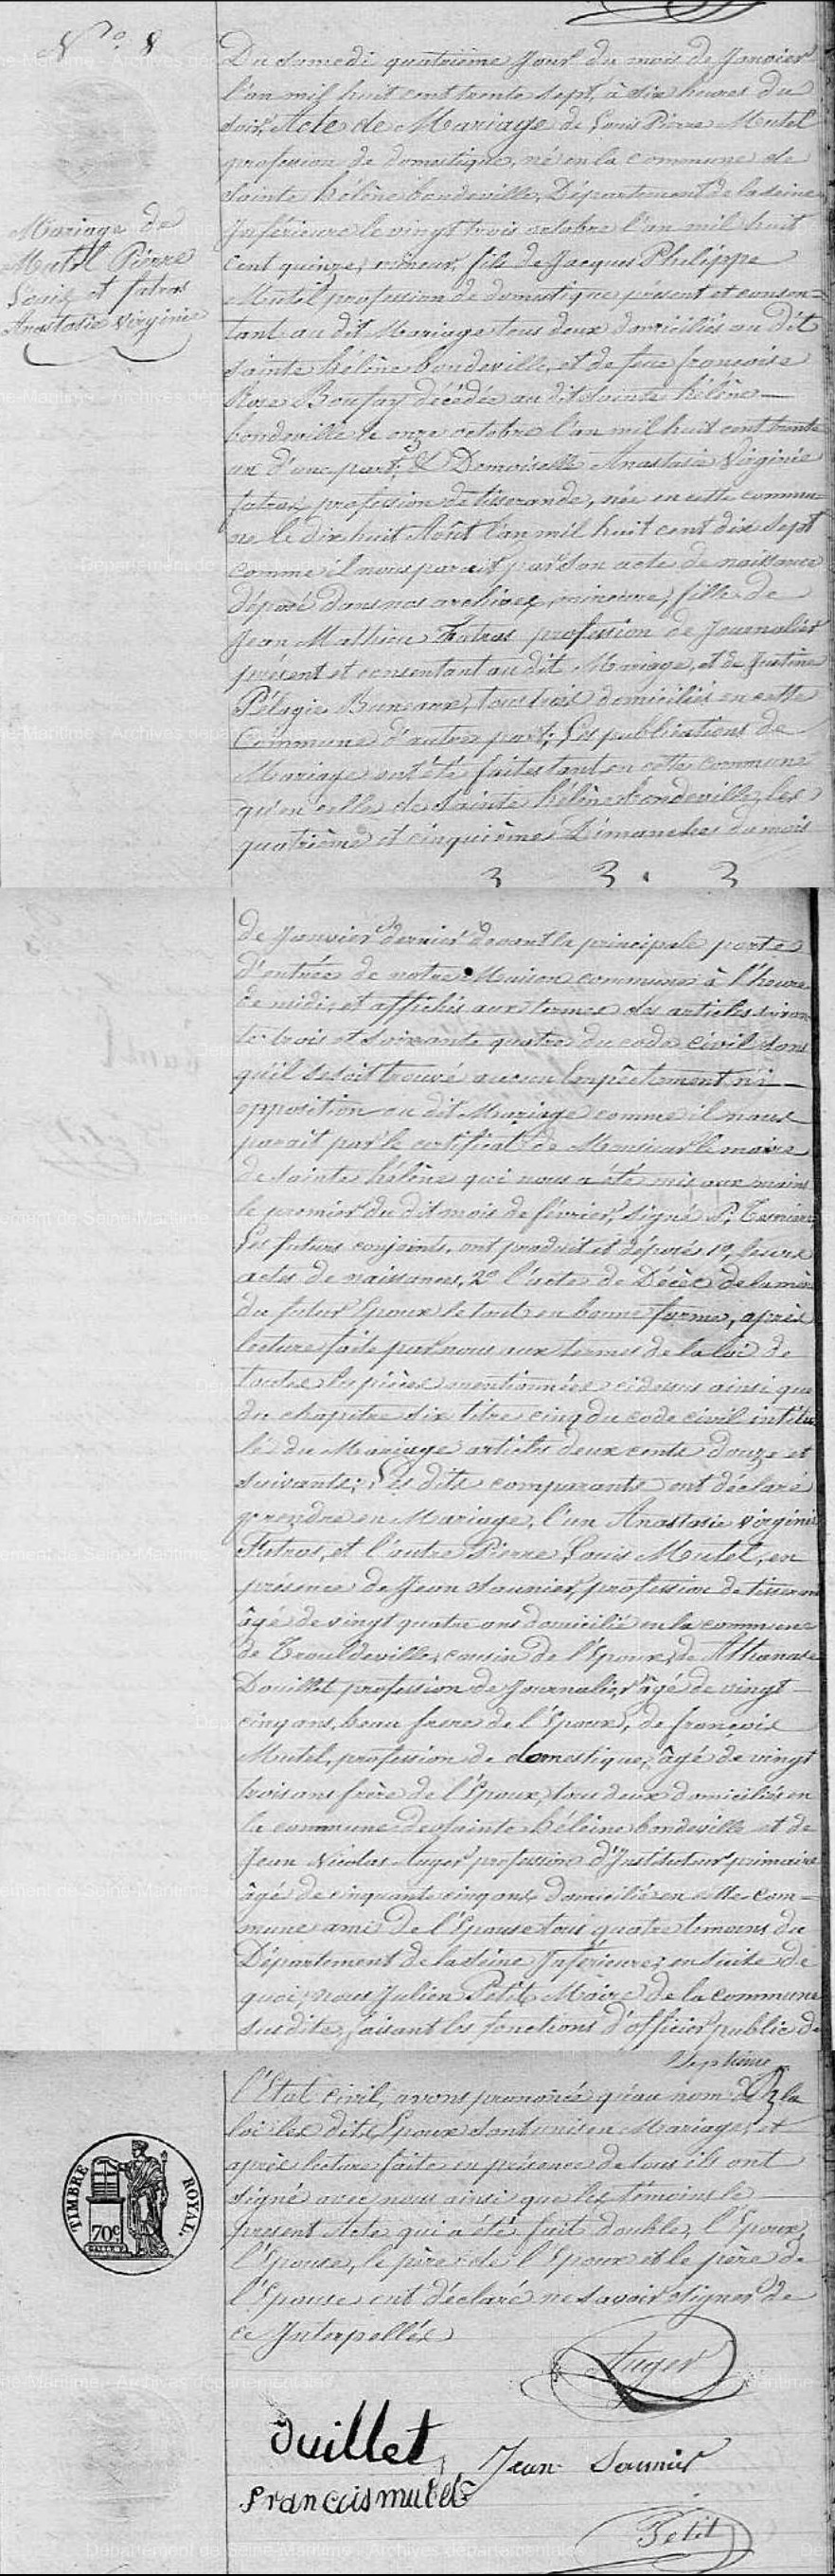 N.º 8
Mariage de
Mutel Pierre
Louis et fatras
Anastasie Virginie
Du Samedi quatrième Jour du mois de Janvier
l'an mil huit cent trente sept, à dix heures du
soir, Acte de Mariage de Louis Pierre Mutel
profession de domestique, né en la commune de
Sainte hélène bondeville, Département de la Seine
Inférieure le vingt trois octobre l'an mil huit
cent quinze, mineur, fils de Jacques Philippe
Mutel profession de domestique présent et consen=
tant au dit Mariage tous deux domiciliés au dit
Sainte hélène bondeville, et de feue françoise
Rose Boufay décédée au dit Sainte hélène
bondeville le onze octobre l'an mil huit cent trente
un d'une part; & Demoiselle Anastasie Virginie
fatras profession de tisserande, née en cette commu=
ne le dix huit Août l'an mil huit cent dix sept
comme il nous parait par son acte de naissance
déposé dans nos archives, mineure, fille de
Jean Mathieu Fatras profession de Journalier
présent et consentant au dit Mariage, et de Justine
Pélagie Buneaux, tous trois domiciliés en cette
Commune d'autre part; Les publications de
Mariage ont été faites tant en cette commune
qu'en celle de Sainte hélène bondeville, les
quatrième et cinquième Dimanches du mois
de Janvier dernier devant la principale porte
d'entrée de notre Maison commune à l'heure
de midi, et affichés aux termes des articles soixan
te trois et soixante quatre du code civil sans
qu'il se soit trouvé aucun Empêchement ni
opposition au dit Mariage comme il nous
parait par le certificat de Monsieur le maire
de Sainte hélène qui nous a été mis aux mains
le premier du dit mois de février, signé
Les futurs conjoints, ont produit et déposés 1º, leurs
actes de naissances, 2º l'acte de Décès de la mère
du futur Epoux le tout en bonne forme, après
lecture faite par nous aux termes de la loi de
toutes les pièces mentionnées ci dessus ainsi que
du chapitre six titre cinq du code civil intitu
lé du Mariage articles deux cents douze et
suivants; Les dits comparants ont déclaré
prendre en Mariage, l'un Anastasie virginie
Fatras, et l'autre Pierre Louis Mutel, en
présence de Jean Saunier, profession de tisseran
âgé de vingt quatre ans domicilié en la commune
de Trouldeville, cousin de l'Epoux, de Athanase
Douillet profession de Journalier, âgé de vingt
cinq ans, beau frere de l'Epoux, de françois
Mutel, profession de domestique, âgé de vingt
trois ans frère de l'Epoux, tous deux domiciliés en
la commune de Sainte hélène bondeville et de
Jean Nicolas Auger profession d'Instituteur primaire
âgé de cinquante cinq ans, domicilié en cette com=
mune ami de l'Epouse tous quatre temoins du
Département de la Seine Inférieure; ensuite de
quoi, nous Julien Petit Maire de la commune
susdite, faisant les fonctions d'officier public de
Septième
l'Etat civil, avons prononcé qu'au nom de la
loi les dits Epoux sont unis en Mariage, et
après lecture faite en présence de tous ils ont
signé avec nous ainsi que les témoins le
présent Acte qui a été fait double, l'Epoux,
l'Epouse, le père de l'Epoux et le père de
l'Epouse ont déclaré ne savoir signer de
ce Interpellés
TIMBRE ROYAL.
70c
Auger
Duillet
Jean Saunier
francois mutel
Petit